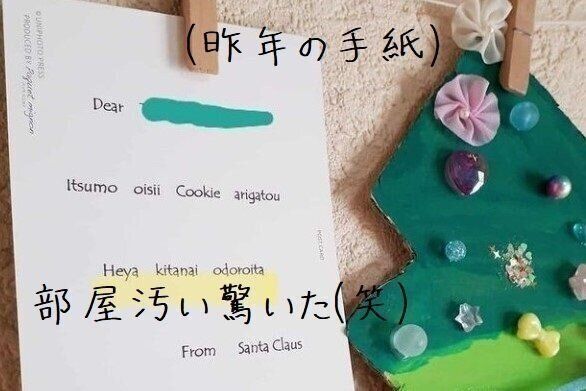 (昨年の手紙)
Dear
Itsumo oisii Cookie arigatou
Heya kitanai odoroita
部屋汚い驚いた(笑)
From Santa Claus
© UNIPHOTO PRESS
PRODUCED BY
POSTCARD